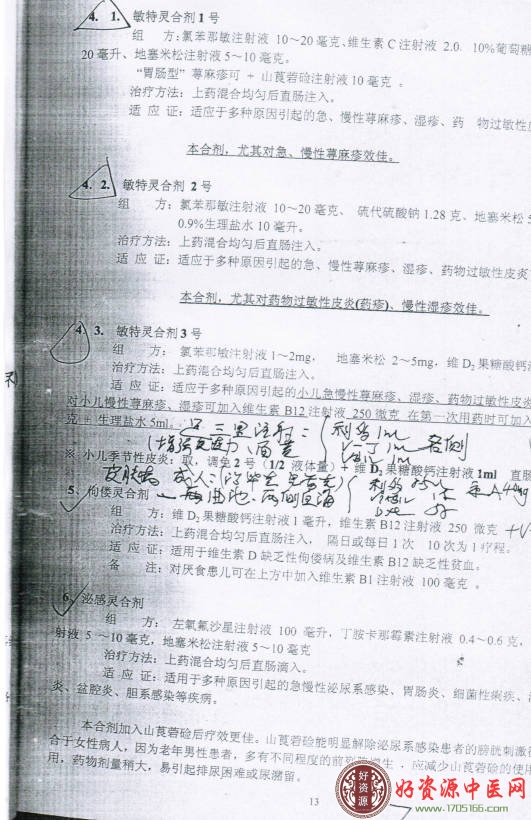 4. 1. 敏特灵合剂1号
组 方:氯苯那敏注射液 10～20毫克、维生素C注射液 2.0. 10%葡萄糖
20毫升、地塞米松注射液5～10毫克。
“胃肠型”荨麻疹可 + 山莨菪硷注射液10毫克。
治疗方法:上药混合均匀后直肠注入。
适 应 证:适应于多种原因引起的急、慢性荨麻疹、湿疹、药 物过敏性
本合剂,尤其对急、慢性荨麻疹效佳。
4. 2. 敏特灵合剂 2号
组 方:氯苯那敏注射液 10～20毫克、 硫代硫酸钠1.28克、地塞米松5
0.9%生理盐水10毫升。
治疗方法:上药混合均匀后直肠注入。
适 应 证:适应于多种原因引起的急、慢性荨麻疹、湿疹、药物过敏性皮炎
本合剂,尤其对药物过敏性皮炎(药疹)、慢性湿疹效佳。
4. 3. 敏特灵合剂3号
组 方: 氯苯那敏注射液1～2mg, 地塞米松 2～5mg,维D₂果糖酸钙
治疗方法:上药混合均匀后直肠注入。
适 应 证:适应于多种原因引起的小儿急慢性荨麻疹、湿疹、药物过敏性皮炎
对小儿慢性荨麻疹、湿疹可加入维生素B12注射液 250微克 在第一次用药时可加入
克 + 生理盐水5ml。 足三里注射:
利多1ml
1ml
各侧
※ 小儿季节性皮炎:取,调免2号(1/2 液体量)+ 维D₂果糖酸钙注射液1ml 直肠
皮肤病 成人:
曲池、两侧血海
5、佝偻灵合剂
组 方:维D₂果糖酸钙注射液1毫升,维生素B12注射液 250 微克
治疗方法:上药混合均匀后直肠注入, 隔日或每日1次 10次为1疗程。
适 应 证:适用于维生素D缺乏性佝偻病及维生素B12缺乏性贫血。
备 注:对厌食患儿可在上方中加入维生素B1注射液 100毫克 。
6、泌感灵合剂
组 方: 左氧氟沙星注射液 100 毫升,丁胺卡那霉素注射液 0.4～0.6克,
射液 5 ～10毫克,地塞米松注射液5～10毫克
治疗方法:上药混合均匀后直肠滴入。
适 应 证:适用于多种原因引起的急慢性泌尿系感染、胃肠炎、细菌性痢疾、
炎、盆腔炎、胆系感染等疾病。
本合剂加入山莨菪硷后疗效更佳。山莨菪硷能明显解除泌尿系感染患者的膀胱刺激
合于女性病人,因为老年男性患者,多有不同程度的前列腺增生,应减少山莨菪硷的使
用,药物剂量稍大,易引起排尿困难或尿潴留。
13
好资源中医网
www.1705166.com